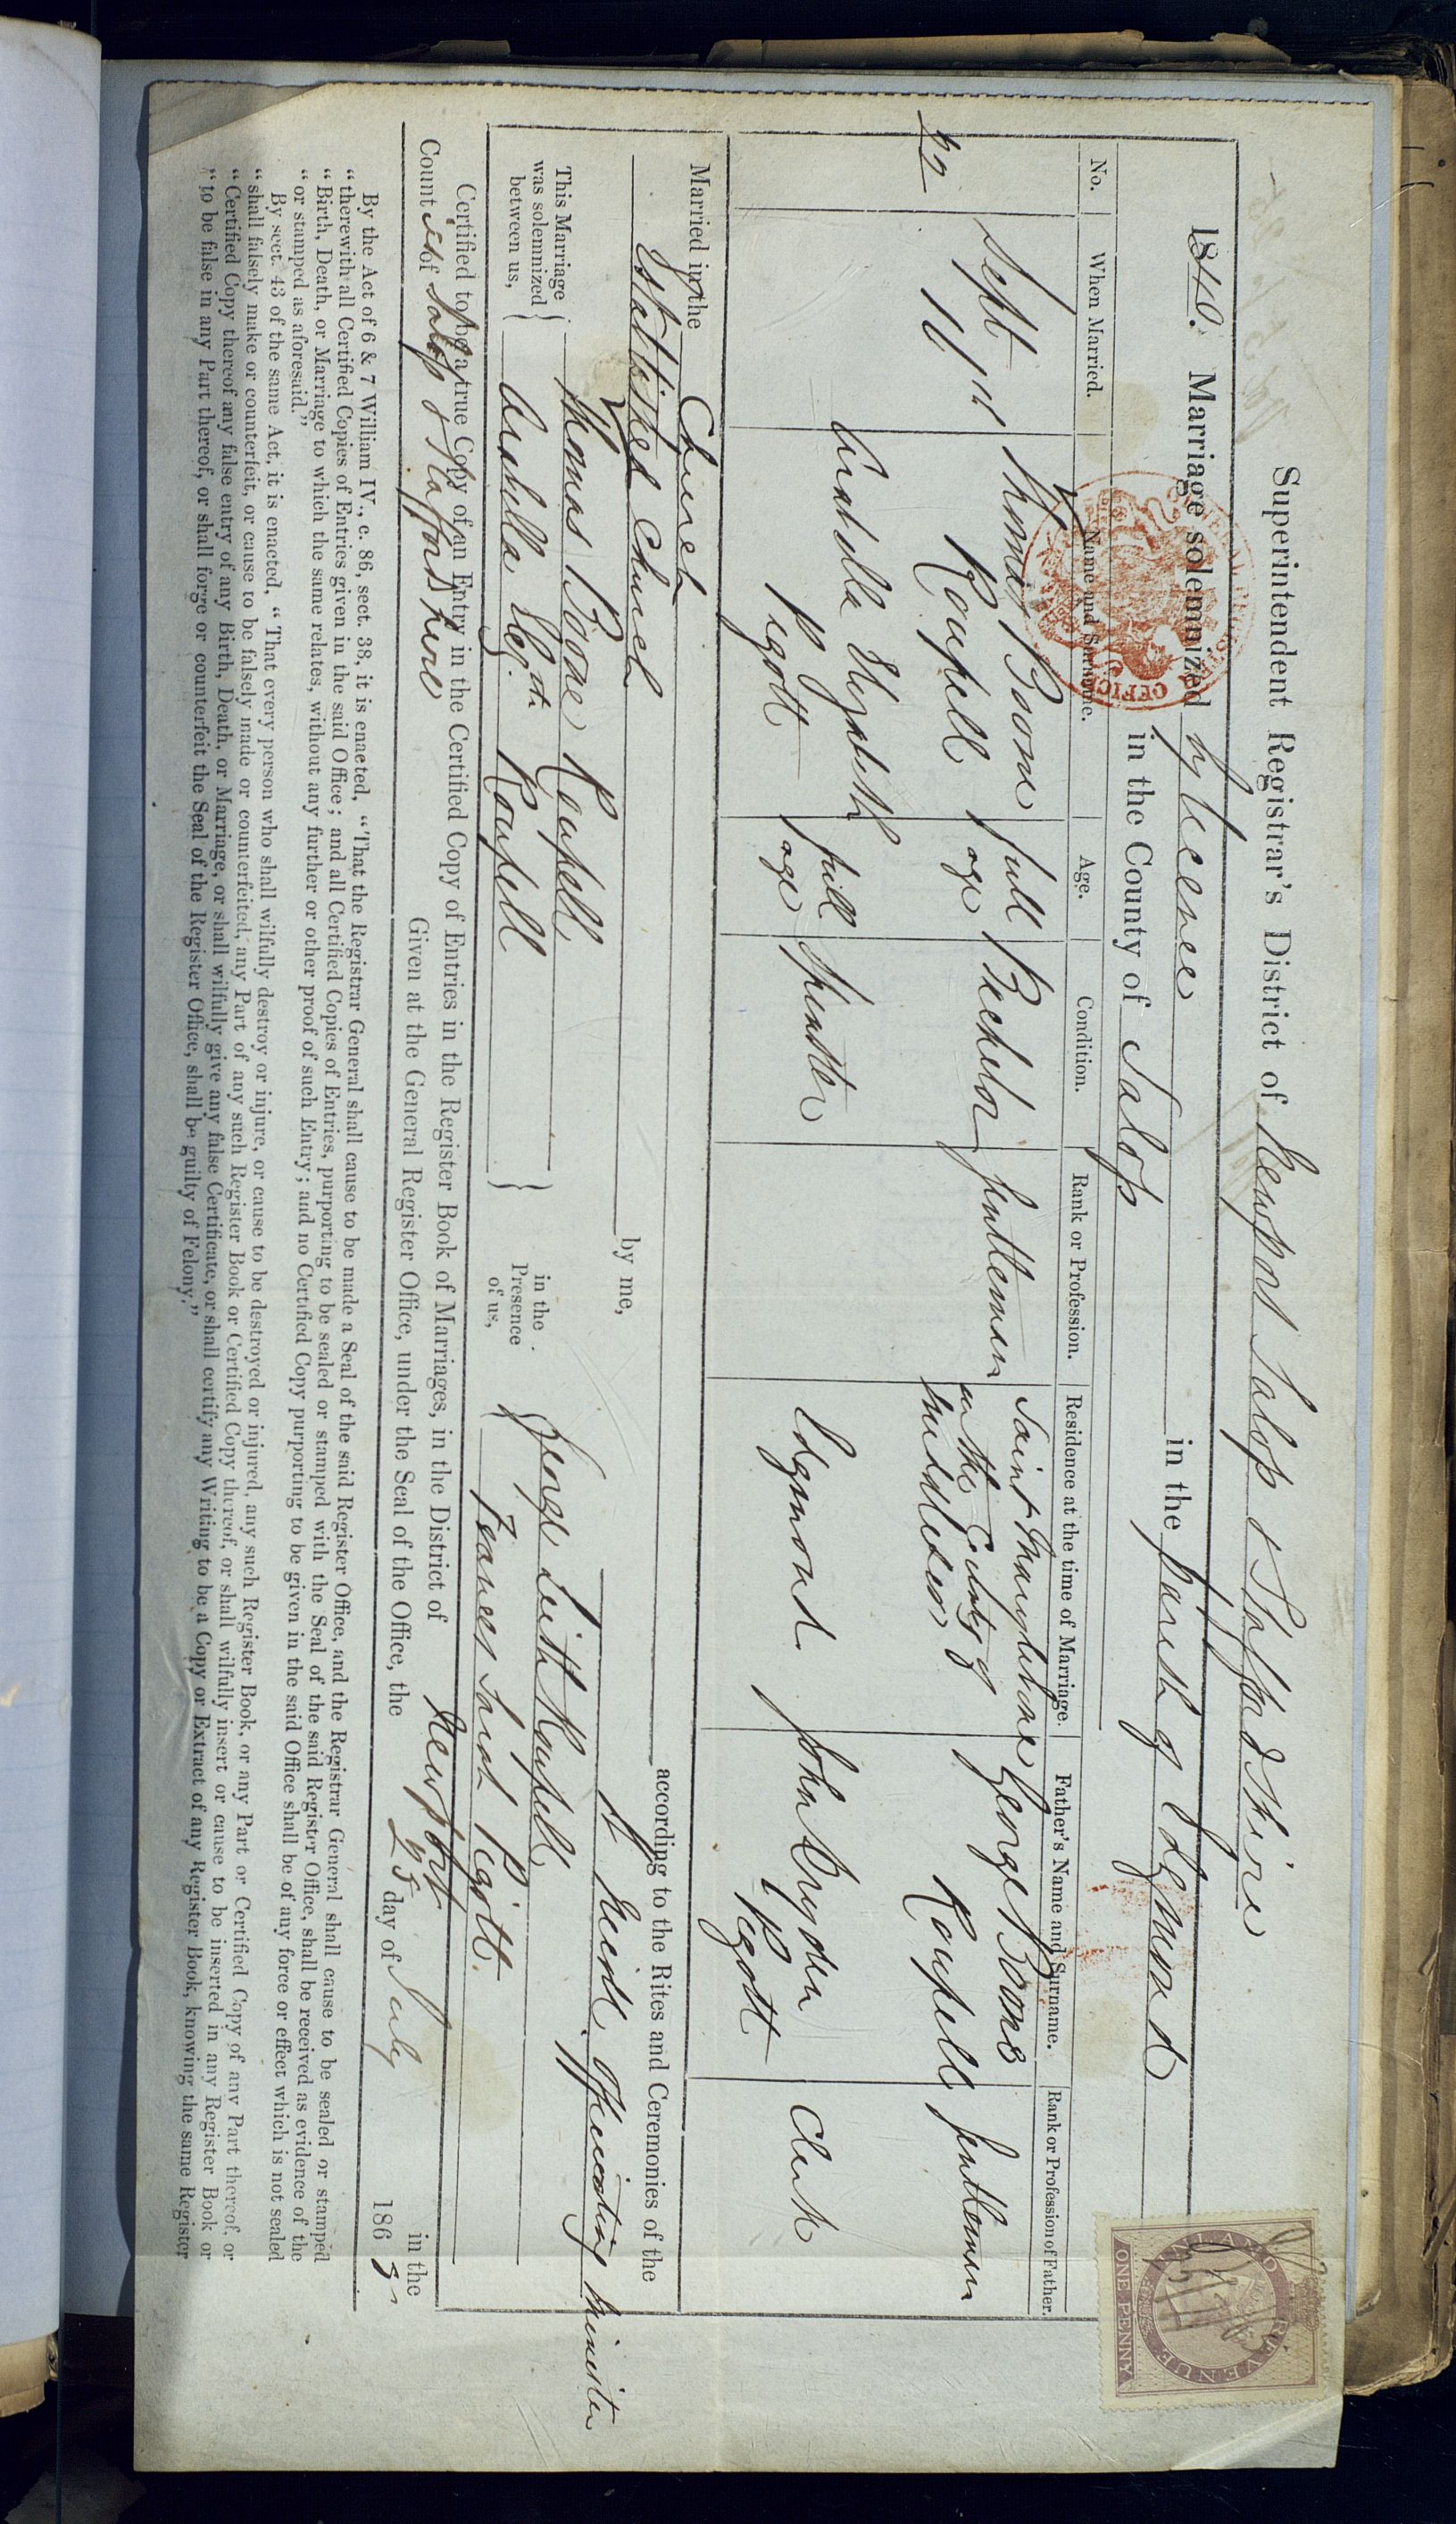 Superintendent Registrar's District of Newport Salop & Staffordshire
1840. Marriage solemnized by licence in the Parish of Edgmond
in the County of Salop
No. When Married. Name and Surname. Age. Condition. Rank or Profession. Residence at the time of Marriage. Father's Name and Surname. Rank or Profession of Father.
Sept Thomas Boone full Bachelor Gentleman Saint Marylebone George Boone Gentleman
Roupell age in the County of Roupell
Middlesex
Arabella Elizabeth full Spinster Edgmond John Dryden Clerk
Pigott age Pigott
Married in the Church according to the Rites and Ceremonies of the
Established Church by me, Officiating Minister
This Marriage was solemnized between us, Thomas Boone Roupell in the Presence of us, George Leith Roupell
Arabella Elizth Roupell Frances Sarah Pigott.
Certified to be a true Copy of an Entry in the Certified Copy of Entries in the Register Book of Marriages, in the District of Newport in the
Counties of Salop & Staffordshire Given at the General Register Office, under the Seal of the Office, the 25 day of July 186
By the Act of 6 & 7 William IV., c. 86, sect. 38, it is enacted, "That the Registrar General shall cause to be made a Seal of the said Register Office, and the Registrar General shall cause to be sealed or stamped
"therewith all Certified Copies of Entries given in the said Office; and all Certified Copies of Entries, purporting to be sealed or stamped with the Seal of the said Register Office, shall be received as evidence of the
"Birth, Death, or Marriage to which the same relates, without any further or other proof of such Entry; and no Certified Copy purporting to be given in the said Office shall be of any force or effect which is not sealed
"or stamped as aforesaid."
By sect. 43 of the same Act, it is enacted, "That every person who shall wilfully destroy or injure, or cause to be destroyed or injured, any such Register Book, or any Part or Certified Copy of any Part thereof, or
"shall falsely make or counterfeit, or cause to be falsely made or counterfeited, any Part of any such Register Book or Certified Copy thereof, or shall wilfully insert or cause to be inserted in any Register Book or
"Certified Copy thereof any false entry of any Birth, Death, or Marriage, or shall wilfully give any false Certificate, or shall certify any Writing to be a Copy or Extract of any Register Book, knowing the same Register
"to be false in any Part thereof, or shall forge or counterfeit the Seal of the Register Office, shall be guilty of Felony."
INLAND REVENUE
ONE PENNY